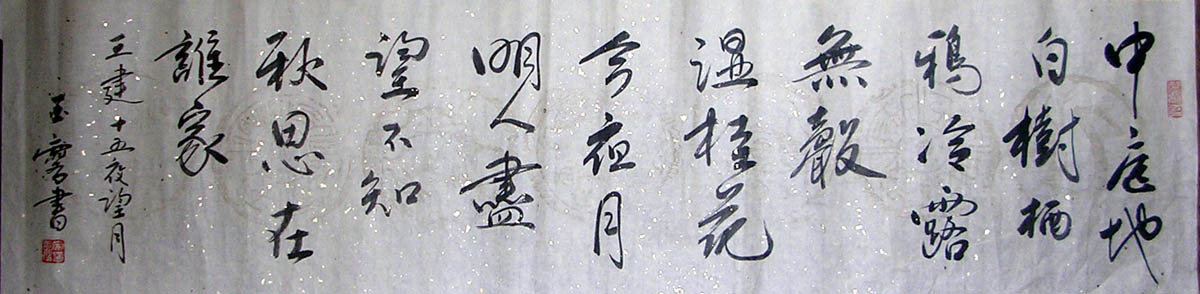 中庭地
白樹栖
鴉冷露
無聲
湿桂花
今夜月
明人盡
望不知
秋思在
誰家
王建十五夜望月
書